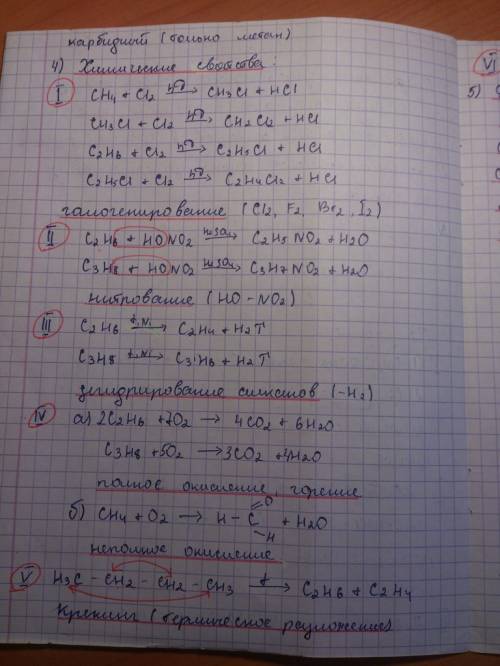 карбидный (только метан)
4) Химические свойства:
I CH4 + Cl2 hν→ CH3Cl + HCl
CH3Cl + Cl2 hν→ CH2Cl2 + HCl
C2H6 + Cl2 hν→ C2H5Cl + HCl
C2H5Cl + Cl2 hν→ C2H4Cl2 + HCl
галогенирование (Cl2, F2, Br2, I2)
II C2H6 + HONO2 H2SO4→ C2H5NO2 + H2O
C3H8 + HONO2 H2SO4→ C3H7NO2 + H2O
нитрование (HO-NO2)
III C2H6 t, Ni→ C2H4 + H2↑
C3H8 t, Ni→ C3H6 + H2↑
дегидрирование алканов (-H2)
IV а) 2C2H6 + 7O2 → 4CO2 + 6H2O
C3H8 + 5O2 → 3CO2 + 4H2O
полное окисление, горение
б) CH4 + O2 → H - C =O - H + H2O
неполное окисление
V H3C - CH2 - CH2 - CH3 t→ C2H6 + C2H4
Крекинг (термическое разложение)
VI
5)